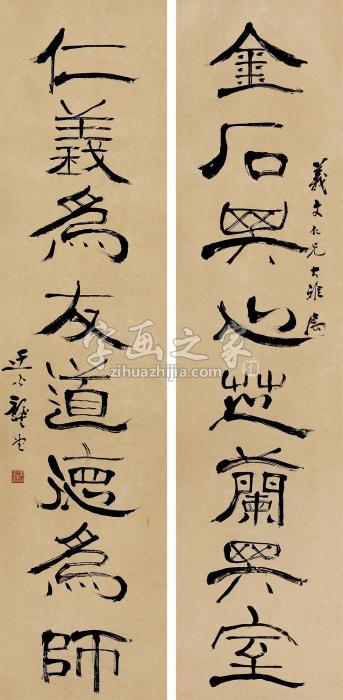 金石其心芝蘭其室
義文仁兄大雅属
仁義為友道德為師
字画之家
zihuazhijia.com